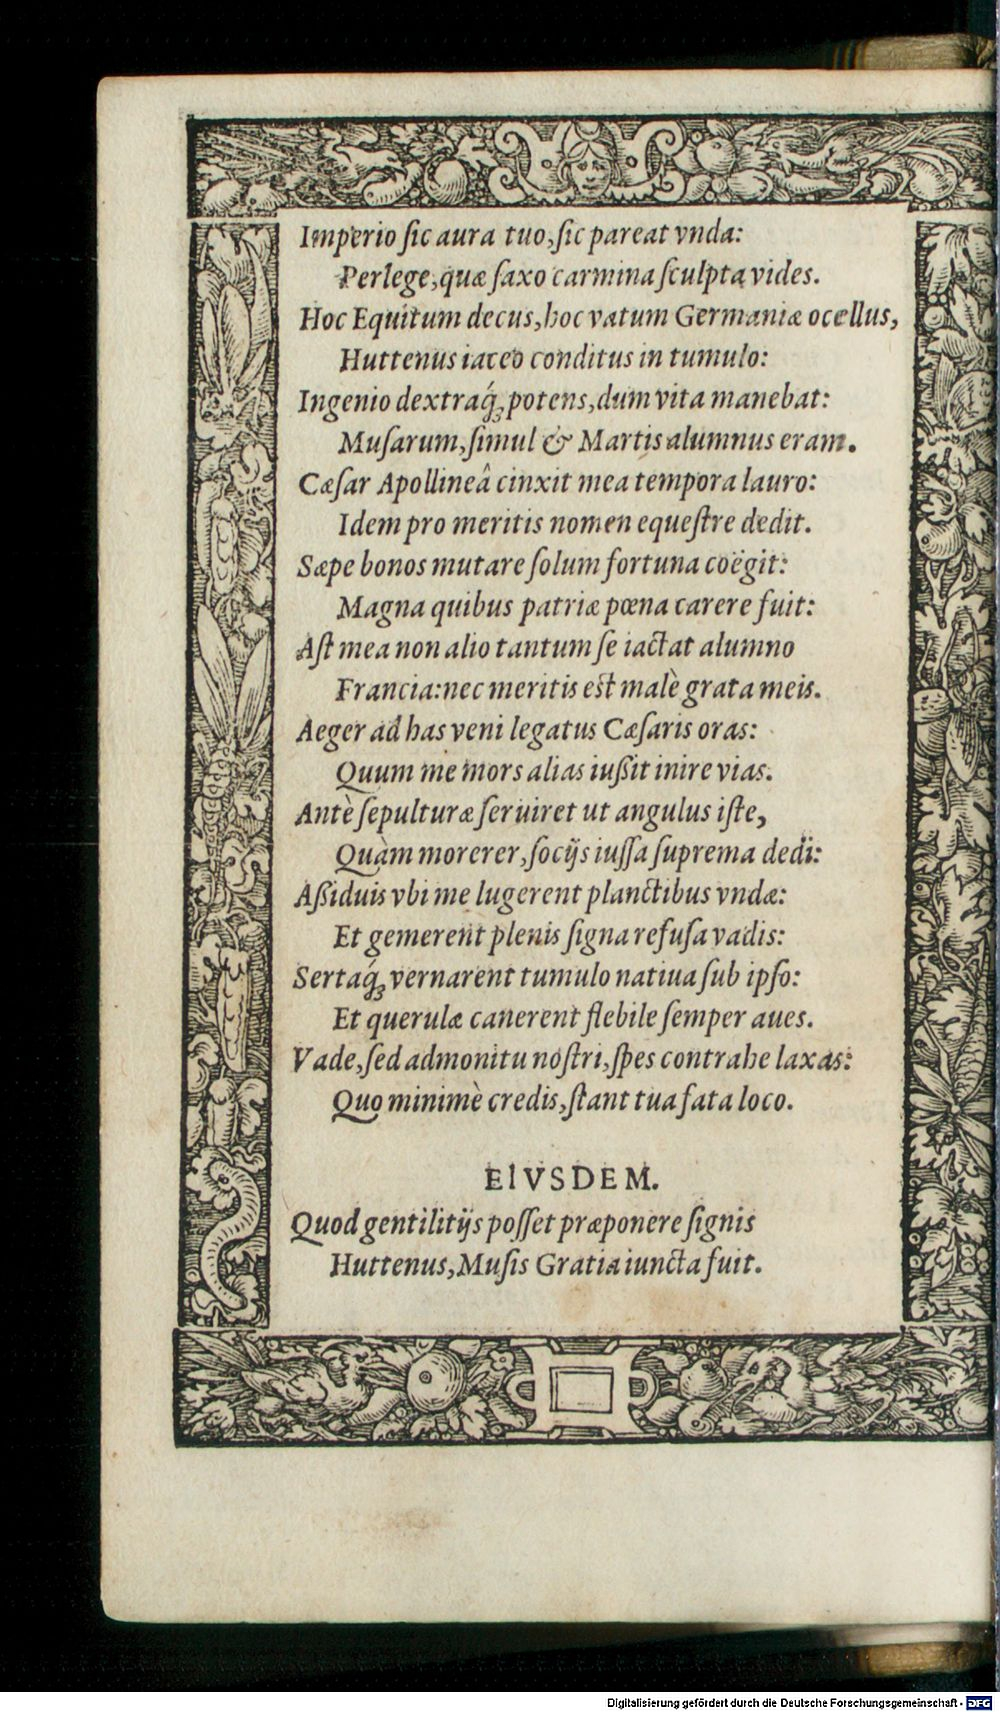 Imperio ſic aura tuo, ſic pareat vnda:
Perlege, quæ ſaxo carmina ſculpta vides.
Hoc Equitum decus, hoc vatum Germaniæ ocellus,
Huttenus iaceo conditus in tumulo:
Ingenio dextraq́ꝫ potens, dum vita manebat:
Muſarum, ſimul & Martis alumnus eram.
Cæſar Apollineâ cinxit mea tempora lauro:
Idem pro meritis nomen equeſtre dedit.
Sæpe bonos mutare ſolum fortuna coëgit:
Magna quibus patriæ pœna carere fuit:
Aſt mea non alio tantum ſe iactat alumno
Francia: nec meritis est malè grata meis.
Aeger ad has veni legatus Cæſaris oras:
Quum me mors alias iuſſit inire vias.
Antè ſepulturæ ſeruiret ut angulus iſte,
Quàm morerer, ſocijs iuſſa ſuprema dedi:
Aſſiduis vbi me lugerent planctibus vndæ:
Et gemerent plenis ſigna refuſa vadis:
Sertaq́ꝫ vernarent tumulo natiua ſub ipſo:
Et querulæ canerent flebile ſemper aues.
Vade, ſed admonitu noſtri, ſpes contrahe laxas:
Quo minimè credis, ſtant tua fata loco.
EIVSDEM.
Quod gentilitijs poſſet præponere ſignis
Huttenus, Muſis Gratia iuncta fuit.
Digitalisierung gefördert durch die Deutsche Forschungsgemeinschaft - DFG